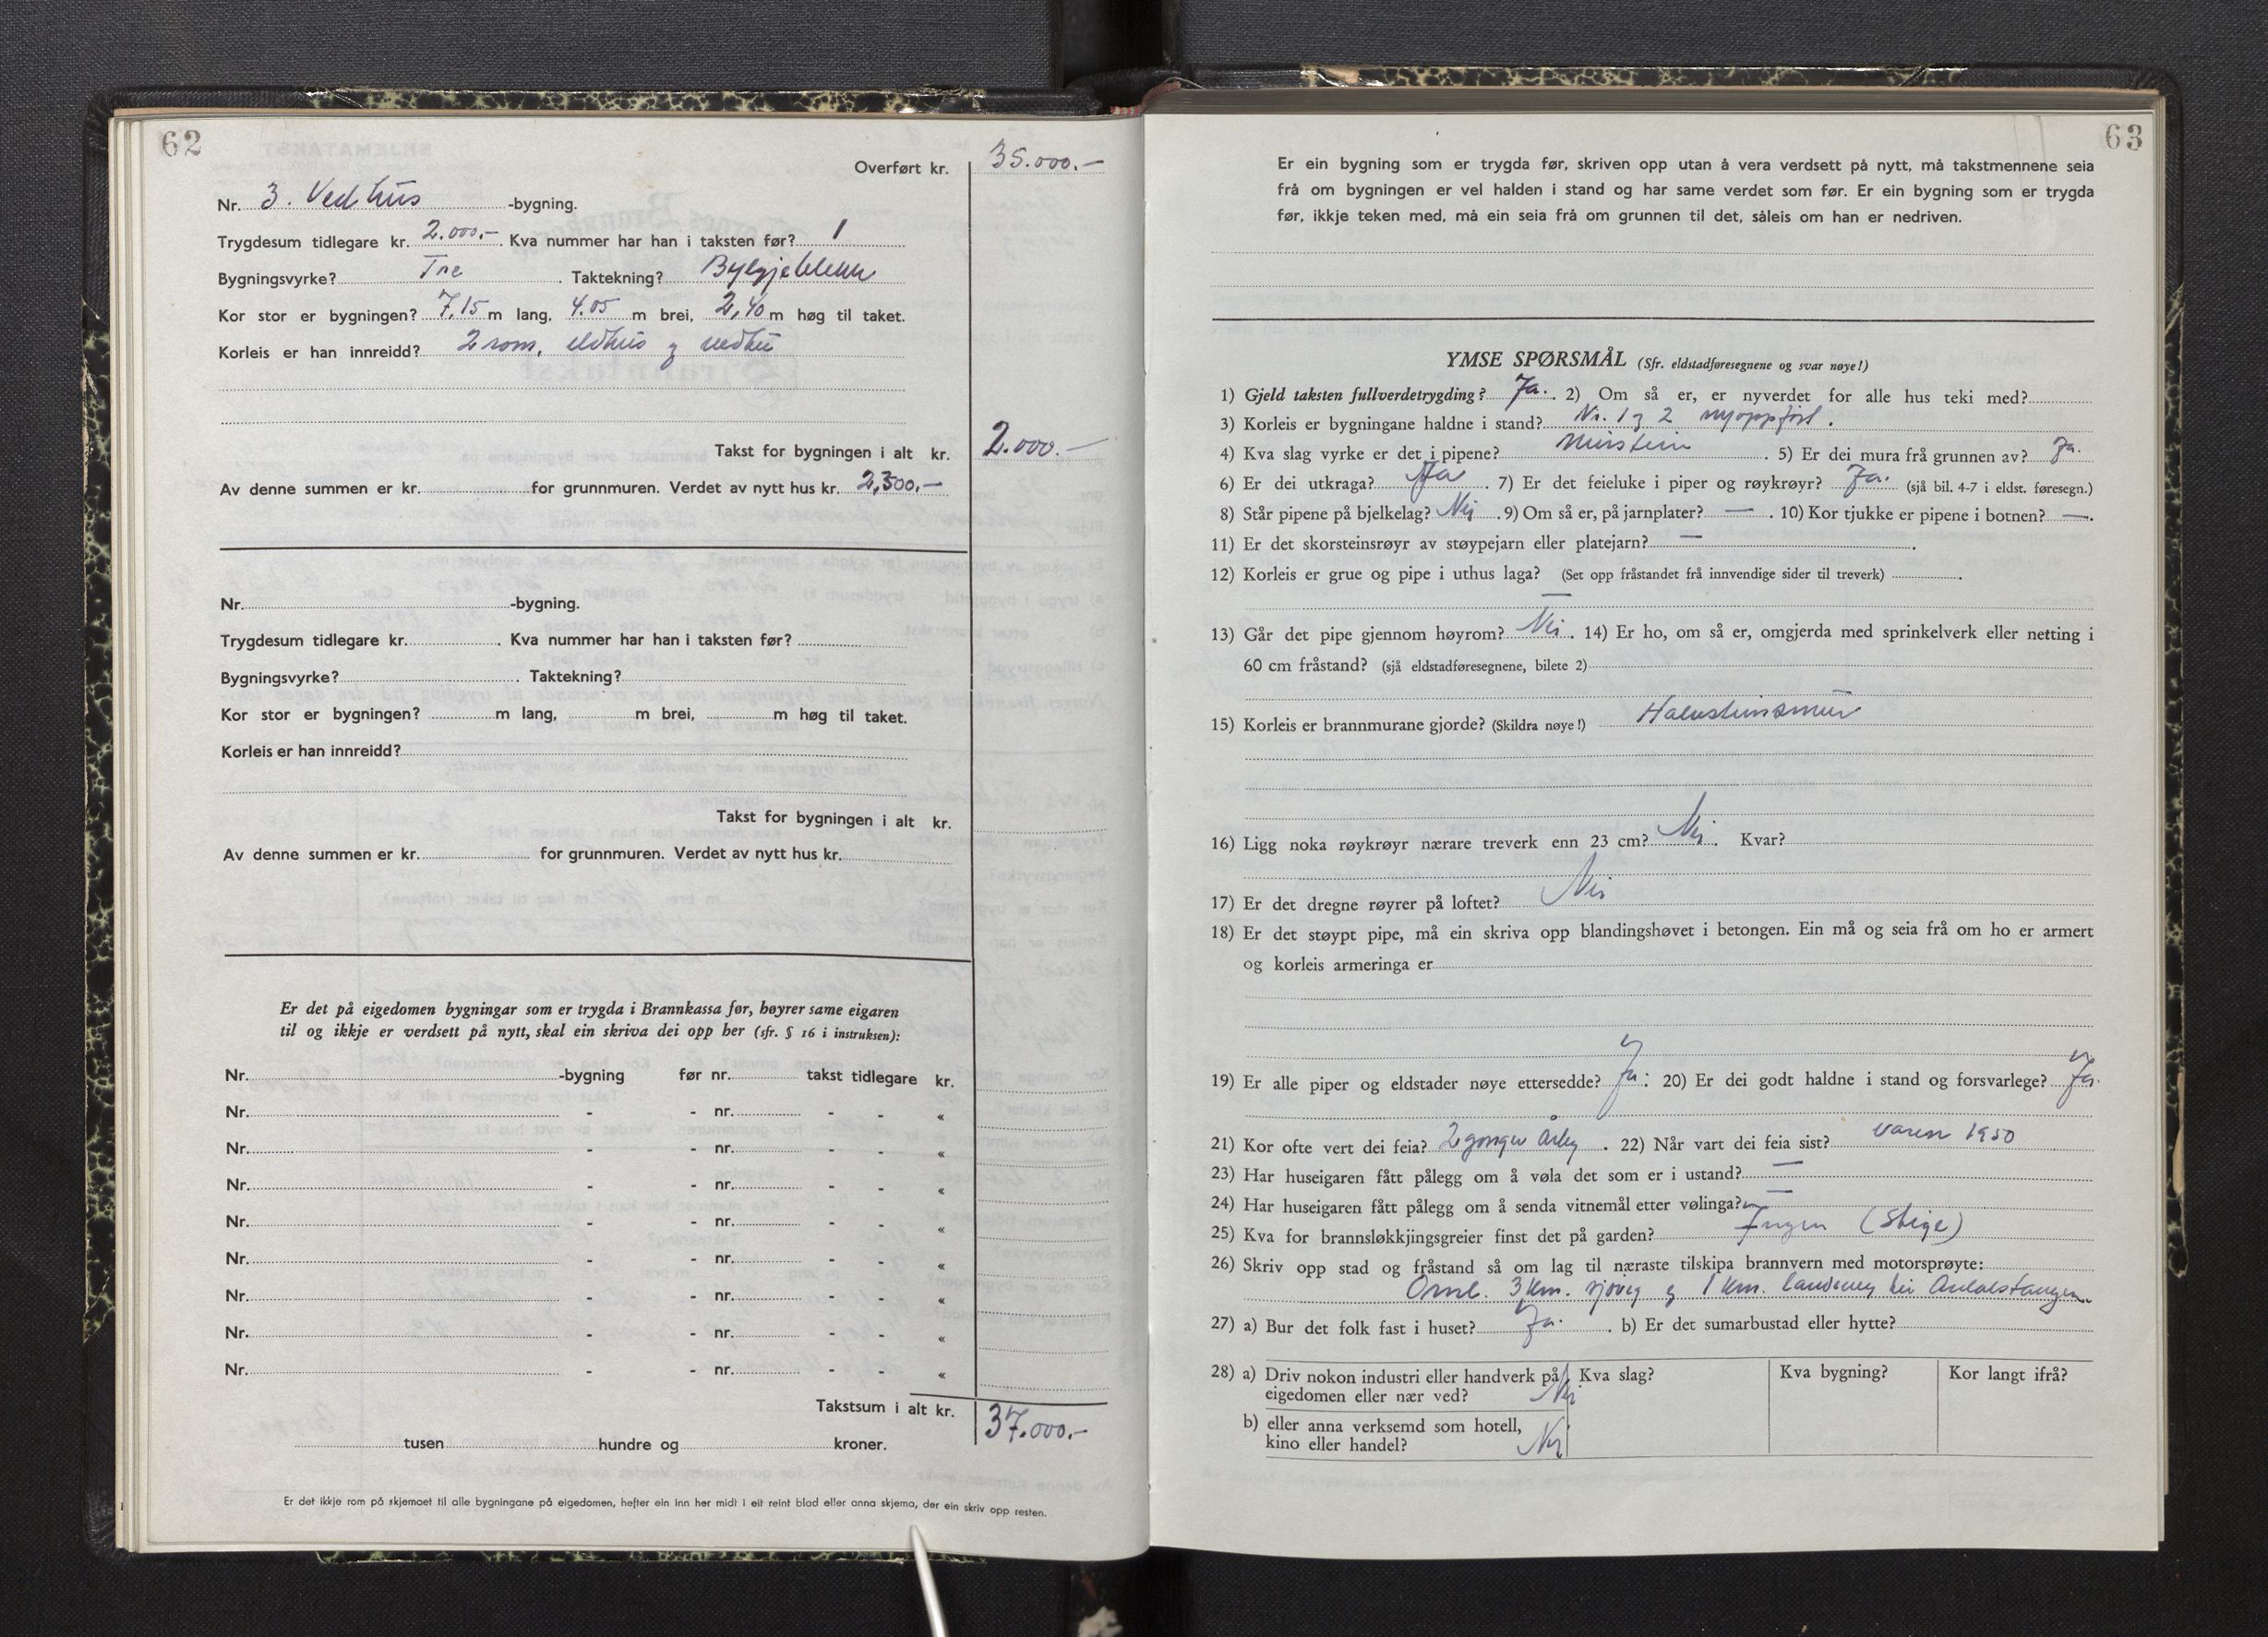 62
Overført kr. 35.000.-
Nr. 3. Vedhus -bygning.
Trygdesum tidlegare kr. 2.000.- . Kva nummer har han i taksten før? 1
Bygningsvyrke? Tre . Taktekning? Bylgjeblekk
Kor stor er bygningen? 7,15 m lang, 4.05 m brei, 2,40 m høg til taket.
Korleis er han innreidd? 2 rom, eldhus og vedhus
Takst for bygningen i alt kr. 2.000.-
Av denne summen er kr. for grunnmuren. Verdet av nytt hus kr. 2,300,-
Nr. -bygning.
Trygdesum tidlegare kr. . Kva nummer har han i taksten før?
Bygningsvyrke? . Taktekning?
Kor stor er bygningen? m lang, m brei, m høg til taket.
Korleis er han innreidd?
Takst for bygningen i alt kr.
Av denne summen er kr. for grunnmuren. Verdet av nytt hus kr.
Er det på eigedomen bygningar som er trygda i Brannkassa før, høyrer same eigaren
til og ikkje er verdsett på nytt, skal ein skriva dei opp her (sfr. § 16 i instruksen):
Nr. -bygning før nr. takst tidlegare kr.
Nr. - - nr. - - «
Nr. - - nr. - - «
Nr. - - nr. - - «
Nr. - - nr. - - «
Nr. - - nr. - - «
Nr. - - nr. - - «
Nr. - - nr. - - «
Nr. - - nr. - - «
Takstsum i alt kr. 37.000.-
tusen hundre og kroner.
Er det ikkje rom på skjemaet til alle bygningane på eigedomen, hefter ein inn her midt i eit reint blad eller anna skjema, der ein skriv opp resten.
63
Er ein bygning som er trygda før, skriven opp utan å vera verdsett på nytt, må takstmennene seia
frå om bygningen er vel halden i stand og har same verdet som før. Er ein bygning som er trygda
før, ikkje teken med, må ein seia frå om grunnen til det, såleis om han er nedriven.
YMSE SPØRSMÅL (Sfr. eldstadføresegnene og svar nøye!)
1) Gjeld taksten fullverdetrygding? Ja. . 2) Om så er, er nyverdet for alle hus teki med?
3) Korleis er bygningane haldne i stand? Nr. 1 og 2 nyoppført.
4) Kva slag vyrke er det i pipene? Murstein . 5) Er dei mura frå grunnen av? Ja.
6) Er dei utkraga? Ja . 7) Er det feieluke i piper og røykrøyr? Ja. (sjå bil. 4-7 i eldst. føresegn.)
8) Står pipene på bjelkelag? Nei . 9) Om så er, på jarnplater? — . 10) Kor tjukke er pipene i botnen? — .
11) Er det skorsteinsrøyr av støypejarn eller platejarn? — .
12) Korleis er grue og pipe i uthus laga? (Set opp fråstandet frå innvendige sider til treverk) .
—
13) Går det pipe gjennom høyrom? Nei . 14) Er ho, om så er, omgjerda med sprinkelverk eller netting i
60 cm fråstand? (sjå eldstadføresegnene, bilete 2)
15) Korleis er brannmurane gjorde? (Skildra nøye!) Halvsteinsmur
16) Ligg noka røykrøyr nærare treverk enn 23 cm? Nei. Kvar?
17) Er det dregne røyrer på loftet? Nei
18) Er det støypt pipe, må ein skriva opp blandingshøvet i betongen. Ein må og seia frå om ho er armert
og korleis armeringa er
19) Er alle piper og eldstader nøye ettersedde? Ja. 20) Er dei godt haldne i stand og forsvarlege? Ja.
21) Kor ofte vert dei feia? 2 gonger årleg . 22) Når vart dei feia sist? våren 1950
23) Har huseigaren fått pålegg om å vøla det som er i ustand? —
24) Har huseigaren fått pålegg om å senda vitnemål etter vølinga? —
25) Kva for brannsløkkjingsgreier finst det på garden? Ingen (Stige)
26) Skriv opp stad og fråstand så om lag til næraste tilskipa brannvern med motorsprøyte:
Oml. 3 km. sjøveg og 1 km. landeveg
27) a) Bur det folk fast i huset? Ja. . b) Er det sumarbustad eller hytte?
28) a) Driv nokon industri eller handverk på eigedomen eller nær ved? Nei Kva slag? Kva bygning? Kor langt ifrå?
b) eller anna verksemd som hotell, kino eller handel? Nei